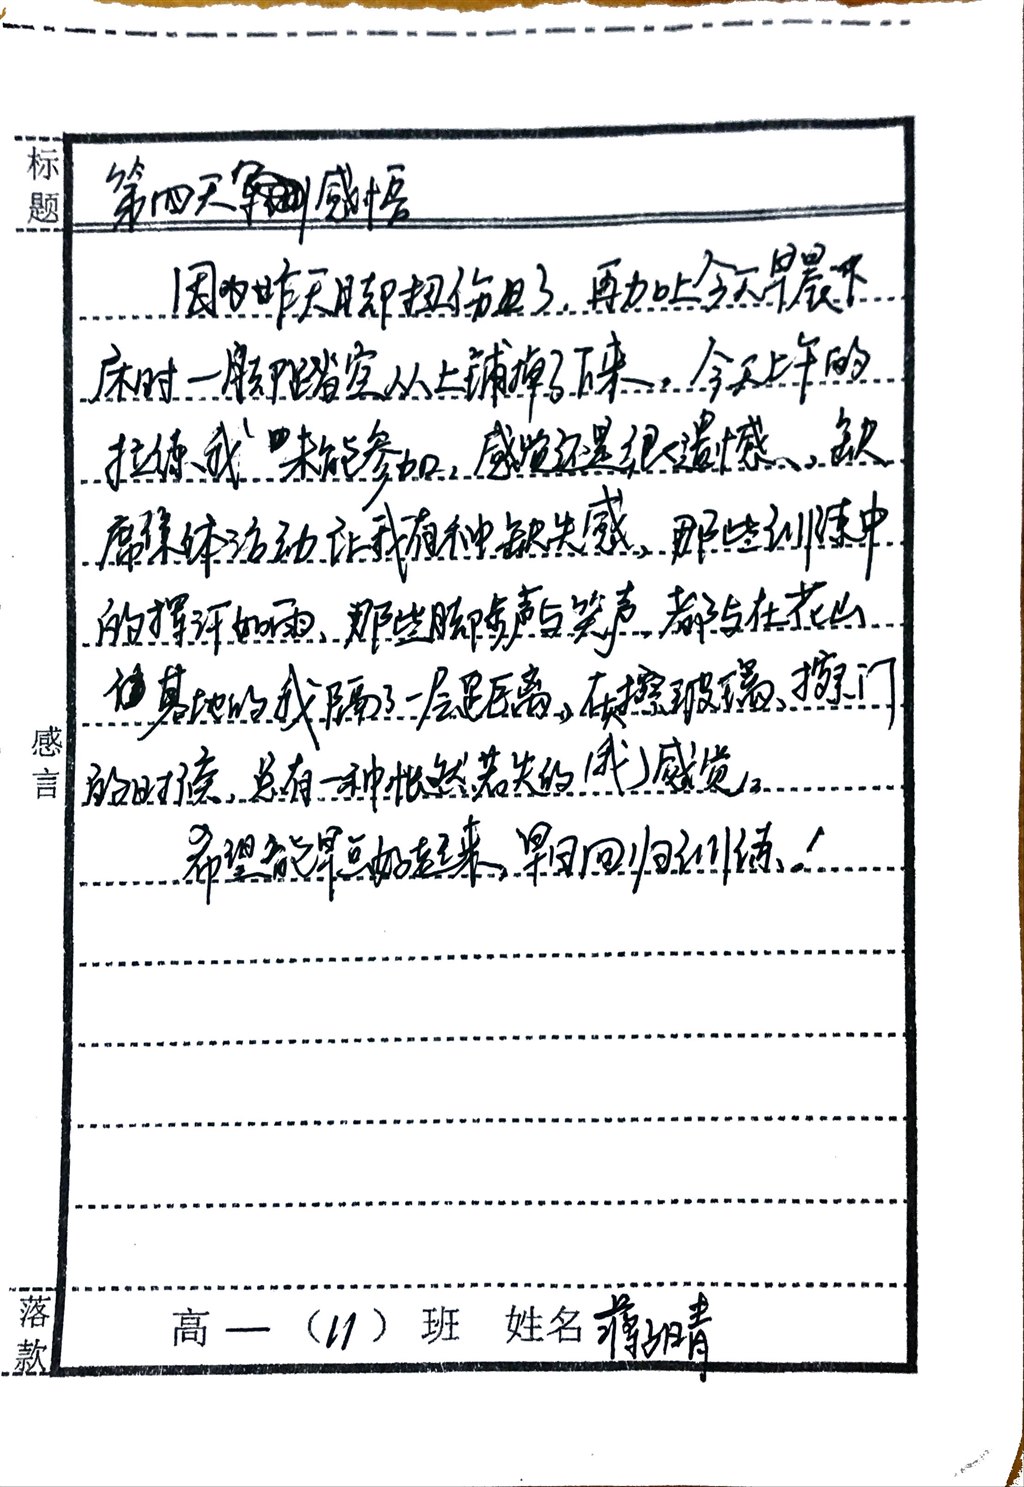 标题
第四天军训感悟
因为昨天脚扭伤了，再加上今天早晨下
床时一脚踏空从上铺掉了下来，今天上午的
拉练我未能参加，感觉还是很遗憾，缺
席集体活动让我有种缺失感，那些训练中
的挥汗如雨、那些脚步声与笑声，都与在花山
基地的我隔了一层距离，在擦玻璃、擦门
的时候，总有一种怅然若失的（我）感觉。
希望能早点好起来，早日回归训练！
感言
落款
高一（11）班 姓名蒋 晴